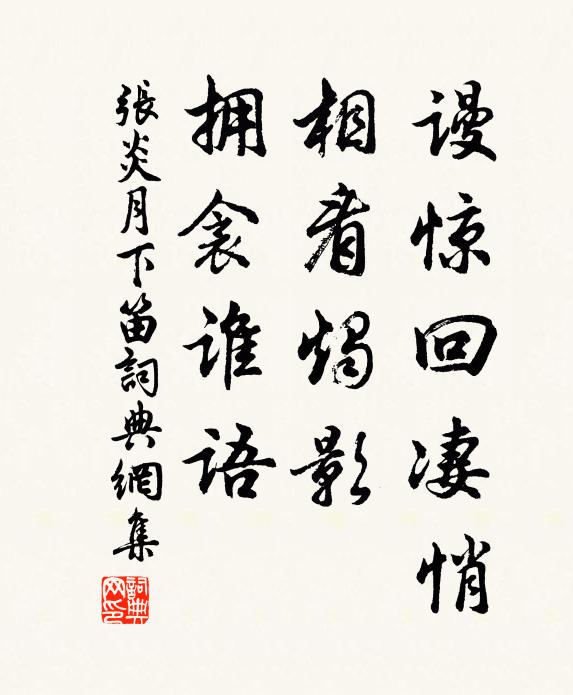 谩惊回凄悄
相看烛影
拥衾谁语
張炎月下笛詞典網集
詞典
网印